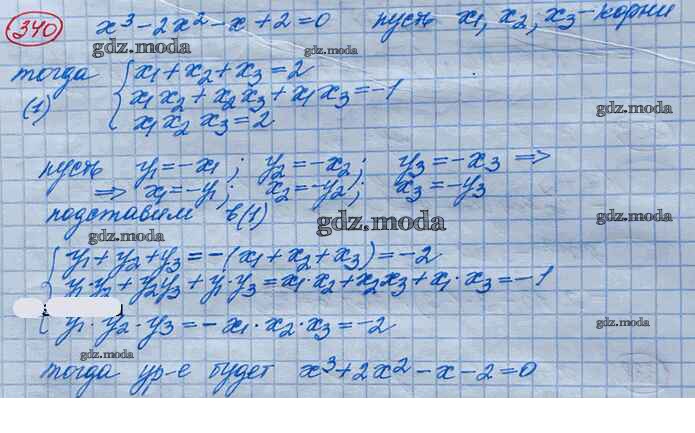 340 x³-2x²-x+2=0 пусть x₁, x₂, x₃ - корни
gdz.moda
gdz.moda
тогда { x₁+x₂+x₃=2
(1) x₁x₂+x₂x₃+x₁x₃=-1
gdz.moda
x₁x₂x₃=2
gdz.moda
пусть y₁=-x₁; y₂=-x₂; y₃=-x₃ ⇒
⇒ x₁=-y₁; x₂=-y₂; x₃=-y₃
подставим в (1)
gdz.moda
gdz.moda
gdz.moda
{ y₁+y₂+y₃=-(x₁+x₂+x₃)=-2
y₁·y₂+y₂y₃+y₁·y₃=x₁·x₂+x₂x₃+x₁·x₃=-1
y₁·y₂·y₃=-x₁·x₂·x₃=-2
gdz.moda
gdz.moda
тогда ур-е будет x³+2x²-x-2=0
gdz.moda